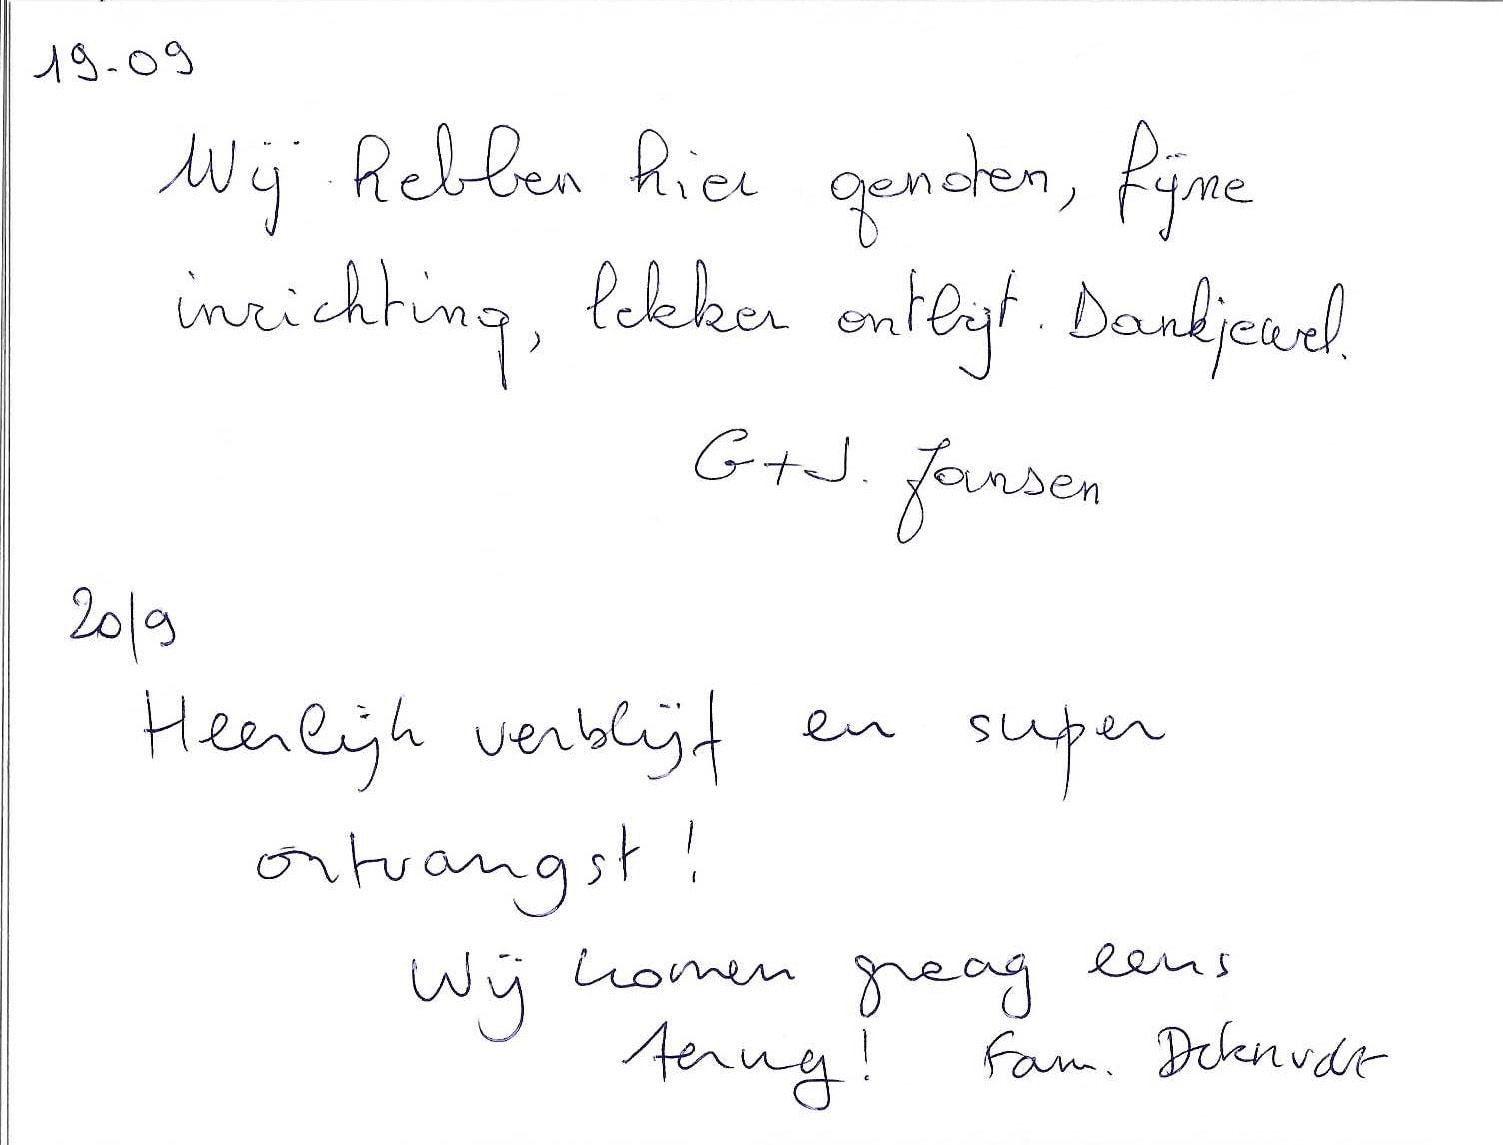 19-09
Wij hebben hier genoten, fijne
inrichting, lekker ontbijt. Dankjewel.
G+J. Jansen
20/9
Heerlijk verblijf en super
ontvangst!
Wij komen graag eens
terug! Fam.